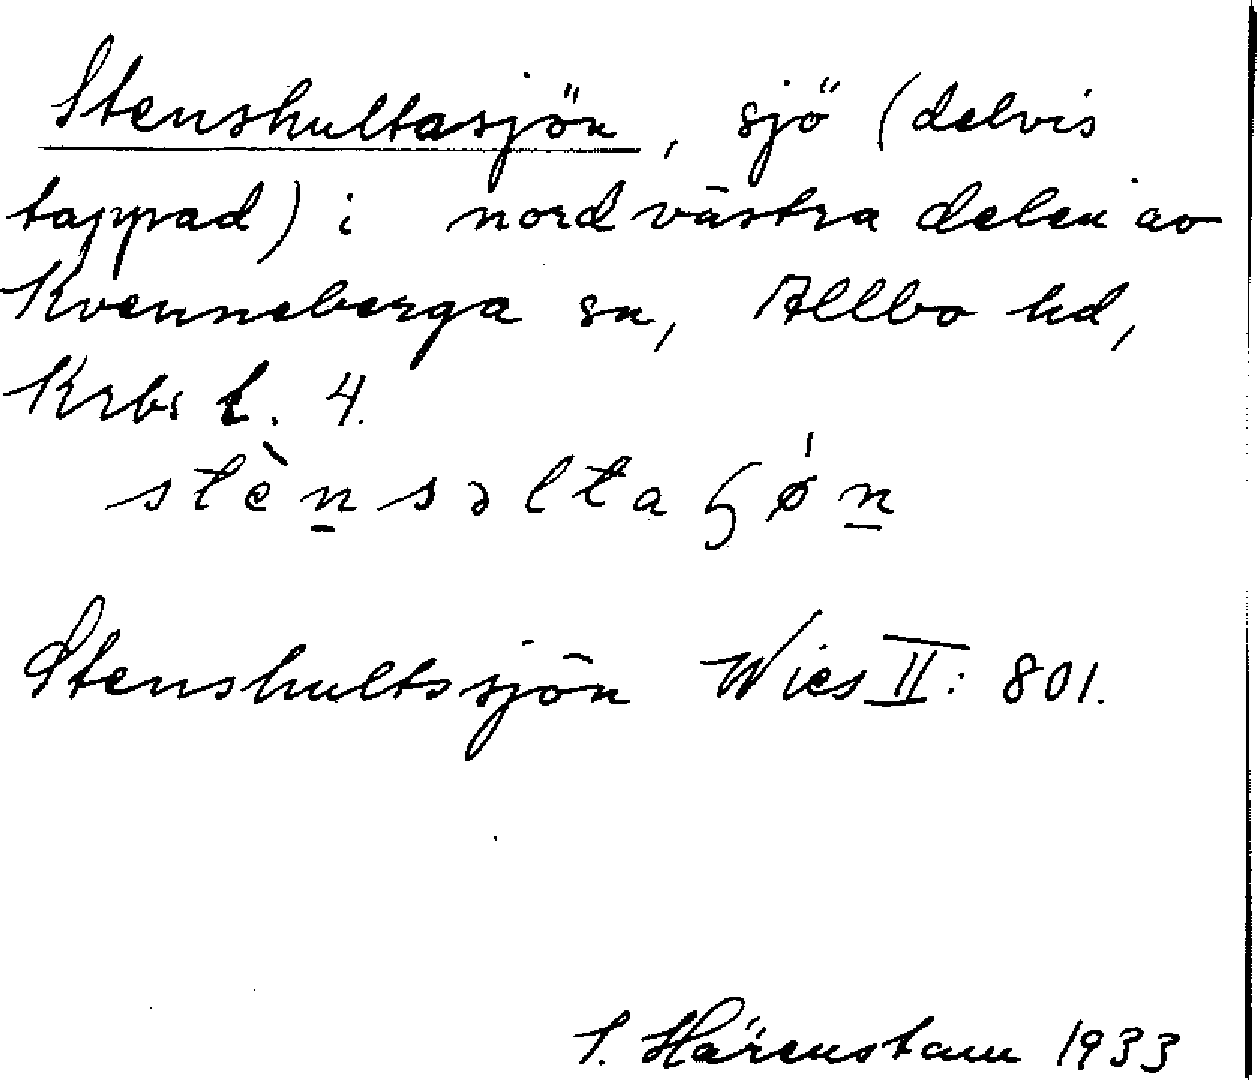 Stenshultasjön, sjö (delvis
tappad) i nordvästra delen av
Kvenneberga sn, Allbo hd,
Krbr l. 4.
stènsəltaɧǿn
Stenshultssjön Wies II: 801.
Härenstam 1933